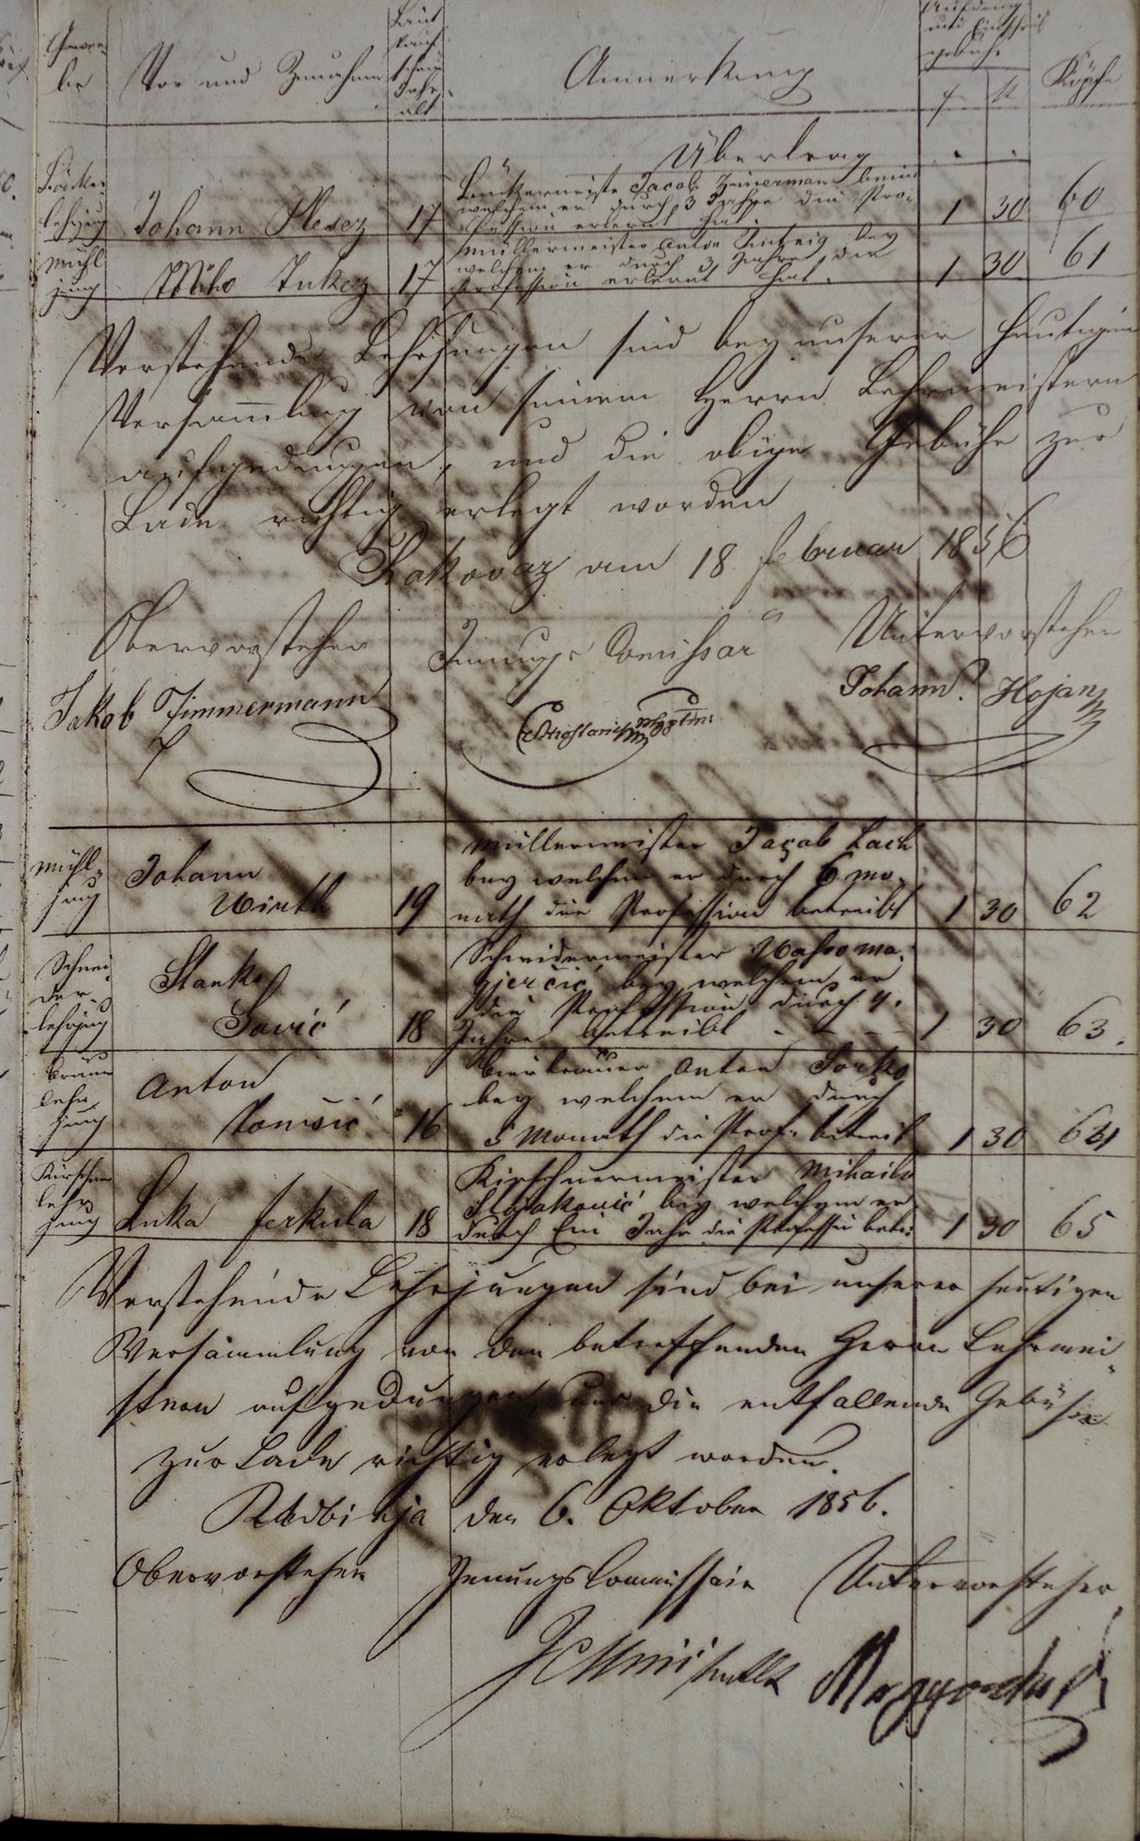 Gewer-
be
Vor und Zunahme
Laut
Tauf
schein
Jahr
alt
Anmerkung
Aufding
und Einschreib
gebühr
f
Köpfe
Übertrag
Bäcker
lehrjung
Johann Plesez
17
Meister Jacob Zimerman
welchem er durch 3 Jahre die Pro-
fession erlernt hat.
1 30 60
Mühl
jung
Miho
17
Müllermeister Anton bey
welchem er durch 3 Jahre die
Profession erlernt hat.
1 30 61
Vorstehende Lehrjungen sind bey unserer heutigen
Versammlung von seinem Herrn Lehrmeistern
aufgedungen, und die obige Gebühr zur
Lade richtig erlegt worden
Rakovaz am 18 Februar 1856
Obervorsteher
Innungs Comissär
Untervorsteher
Jakob Zimmermann
Johann Hojan
Mühl-
jung
Johann
Wirth
19
Müllermeister Jacob Lach
bey welchem er durch 6 mo-
nath die Profession betreibt
1 30 62
Schnei-
der-
lehrjung
Stanko
Savić
18
Schneidermeister Vaso ma-
bey welchem er
die Profession durch 4.
Jahre betreibt
1 30 63.
Bräuer
Lehr
jung
Anton
Tomšić
16
Bierbrauer Anton
bey welchem er durch
5 Monath die Prof. betreibt
1 30 64
Kürschner
lehr
jung
Luka Jerkula
18
Kirschnermeister Mihailo
bey welchem er
durch Ein Jahr die Profession betr:
1 30 65
Vorstehende Lehrjungen sind bei unserer heutigen
Versammlung von den betreffenden Herrn Lehrmei-
stern aufgedungen, und die entfallende Gebühr
zur Lade richtig erlegt worden.
den 6. Oktober 1856.
Obervorsteher
Innungs Commissair
Untervorsteher